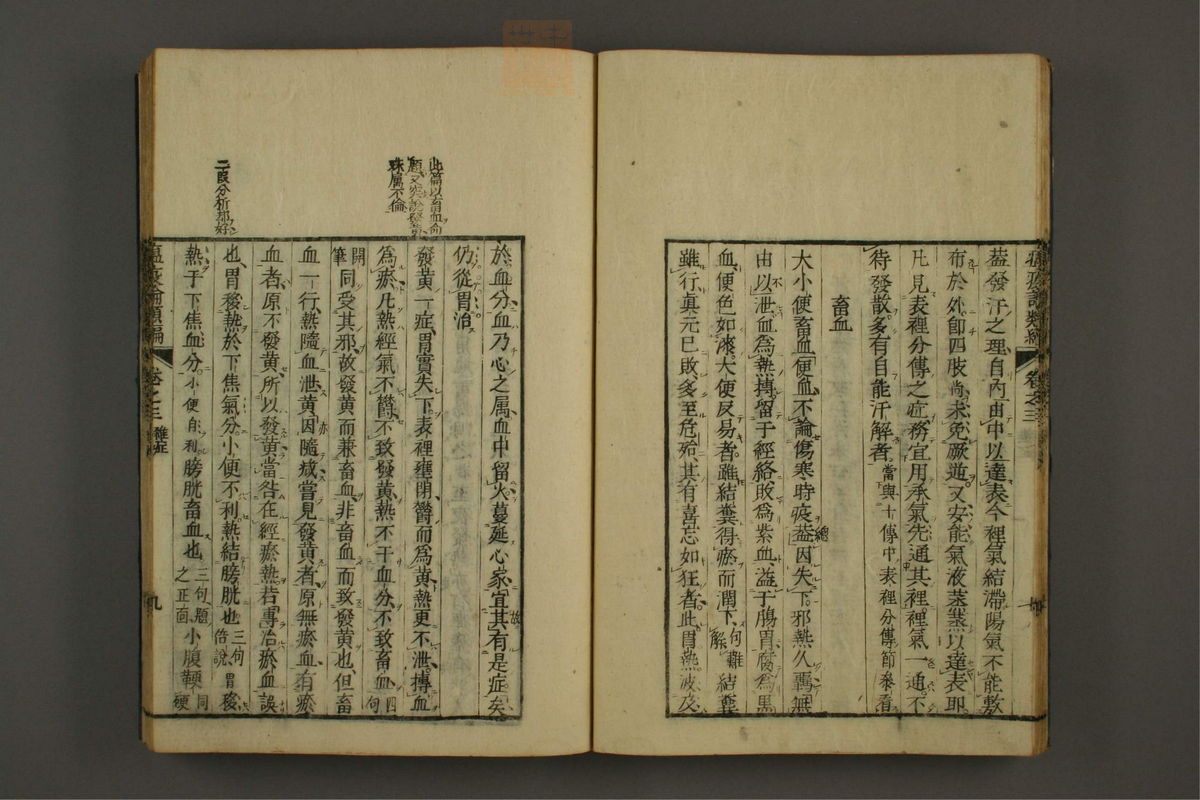 蓋發汗之理自內由中以達表今裡氣結滯陽氣不能敷
布於外即四肢尚未免厥逆又安能氣液蒸蒸以達表即
凡見表裡分傳之症務宜用承氣先通其裡裡氣一通不
待發散多有自能汗解者當與十傳中表裡分傳節參看
畜血
大小便畜血便血不論傷寒時疫蓋因失下邪熱久羈無
由以泄血為熱搏留于經絡敗為紫血溢于腸胃腐為黑
血便色如漆大便反易者雖結糞得瘀而潤下句難解結糞
雖行真元已敗多至危殆其有喜忘如狂者此胃熱波及
於血分血乃心之属血中留火蔓延心家宜其有是症矣
仍從胃治
發黃一症胃實失下表裡壅閉鬱而為黃熱更不泄搏血
為瘀凡熱經氣不鬱不致發黃熱不干血分不致畜血四句
開筆同受其邪故發黃而兼畜血非畜血而致發黃也但畜
血一行熱隨血泄黃因隨减嘗見發黃者原無瘀血有瘀
血者原不發黃所以發黃當咎在經瘀熱若專治瘀血誤
也胃移熱於下焦氣分小便不利熱結膀胱也三句倍說胃移
熱于下焦血分小便自利膀胱畜血也三句題之正面小腹鞕同硬
此篇以畜血命
殊属不倫
二段分析都好
卷之三
卷之三 雜症
九